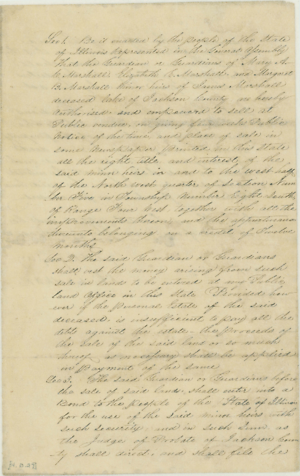 Sec 1. Be it enacted by the people of the State
of Illinois represented in the General Assembly
That the Guardian or Guardians of Mary A.
C. Marshall Elizabeth Marshall and Margret
B. Marshall minor heirs of James Marshall
deceased late of Jackson County are hereby
authorized and empowered to sell at
Public vendue on giving Public
Notice of the time and place of sale in
some Newspaper printed in this State
all the right title and interest of the
said minor heirs in and to the west half
of the North west quarter of Section Num
ber Five in Township Number Eight South
of Range Four West together with all the
improvements thereon and the appurtenan
belonging on a credit of Twelve
Months
Sec 2. The said Guardian or Guardians
shall the money arising from such
sale in lands to be entered at any Public
land office in this State Provided how
ever if the Personal Estate of the said
deceased is insufficient to pay all the
debts against the estate the proceeds of
the Sale of the said land or so much
as necessary shall be applied
in Payment of the same
Sec 3. The said Guardian or Guardians before
the sale of said lands shall enter into a
bond to the people of the State of Illinois
for the use of the said minor heirs with
such security and in such Sum as
the Judge of Probate of Jackson Coun
ty shall direct and shall file the